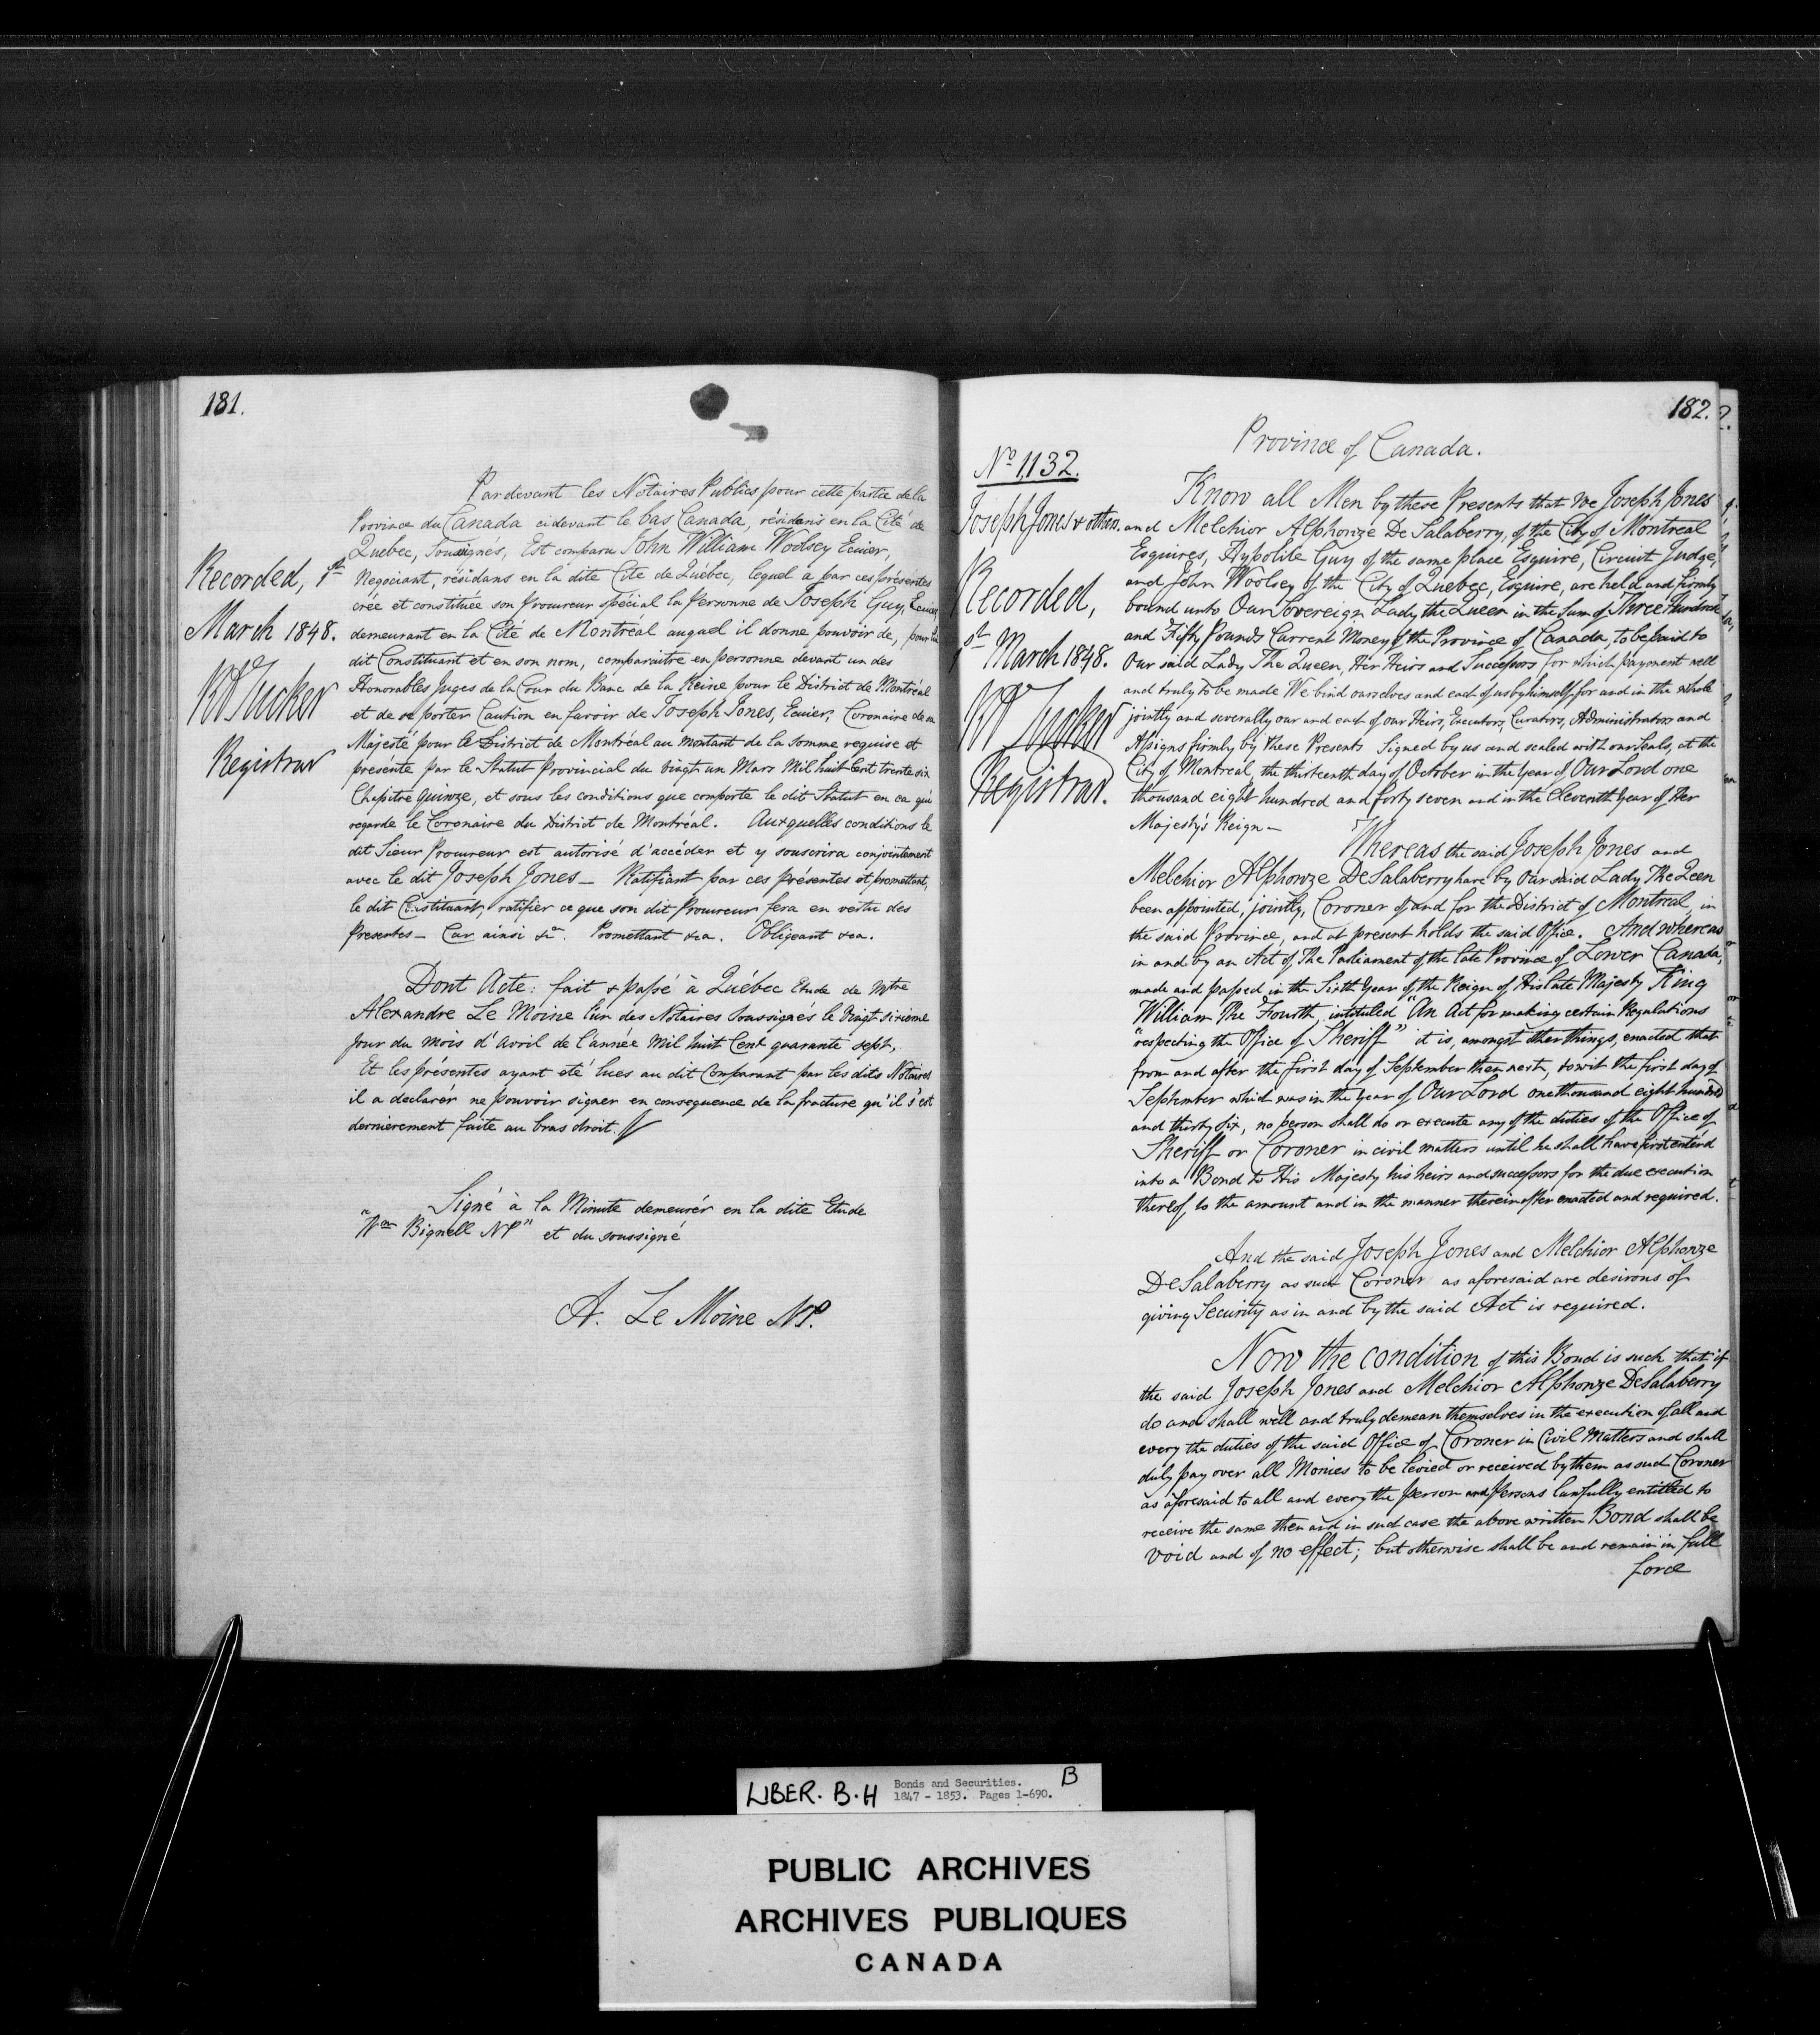 181.
Recorded, 1st
March 1848.
R A Tucker
Registrar
Pardevant les Notaires Publics pour cette partie de la
Province du Canada cidevant le bas Canada, résidans en la Cité de
Quebec, Soussignés, Est comparu John William Woolsey Ecuier,
Negociant, résidans en la dite Cité de Québec, lequel a par ces présentes
crée et constituée son Procureur spécial la Personne de Joseph Guy, Ecuier,
demeurant en la Cité de Montréal auquel il donne pouvoir de, pour le
dit Constituant et en son nom, comparaitre en personne devant un des
Honorables Juges de la Cour du Banc de la Reine pour le District de Montréal
et de se porter Caution en favoir de Joseph Jones, Ecuier, Coronaire de sa
Majesté pour le District de Montréal au montant de la somme requise et
présente par le Statut Provincial du vingt un Mars Mil huit Cent trente six
Chapitre quinze, et sous les conditions que comporte le dit Statut en ca qui
regarde le Coronaire du District de Montréal. Auxquelles conditions le
dit Sieur Procureur est autorisé d'accéder et y souscrira conjointement
avec le dit Joseph Jones — Ratifiant par ces présentes et promettant,
le dit Constituant, ratifier ce que son dit Procureur fera en vertu des
Presentes — Car ainsi &a. Promettant &ca. Obligeant &ca.
Dont Acte: fait & passé à Québec Etude de Mtre
Alexandre Le Moine l'un des Notaires Soussignés le vingt sixieme
Jour du mois d'Avril de l'année Mil huit Cent quarante sept,
Et les présentes ayant eté lues au dit Comparant par les dits Notaires
il a declarér ne pouvoir signer en consequence de la fracture qu'il s'est
dernierement faite au bras droit.
Signé à la Minute demeurér en la dite Etude
"Wm Bignell NP" et du soussigné
A. Le Moine NP.
182.
Province of Canada.
No 1132.
Joseph Jones & others.
Recorded,
1st March 1848.
R A Tucker
Registrar.
Know all Men by these Presents that We Joseph Jones
and Melchior Alphonze De Salaberry, of the City of Montreal
Esquires, Hypolite Guy of the same place Esquire, Circuit Judge,
and John Woolsey of the City of Quebec, Esquire, are held and firmly
bound unto Our Sovereign Lady the Queen in the Sum of Three Hundred
and Fifty Pounds Current Money of the Province of Canada, to be paid to
Our said Lady The Queen, Her Heirs and Successors, for which payment well
and truly to be made We bind ourselves and each of us by himself, for and in the whole
jointly and severally our and each of our Heirs, Executors, Curators, Administrators and
Assigns firmly by these Presents Signed by us and sealed with our Seals, at the
City of Montreal, the thirteenth day of October in the Year of Our Lord one
thousand eight hundred and forty seven and in the Eleventh Year of Her
Majesty's Reign —
Whereas the said Joseph Jones and
Melchior Alphonze De Salaberry have by Our said Lady The Qeen
been appointed, jointly, Coroner of and for the District of Montreal, in
the said Province, and at present holds the said Office. And whereas
in and by an Act of The Parliament of the late Province of Lower Canada,
made and passed in the Sixth Year of the Reign of His late Majesty King
William The Fourth, intituled "An Act for making certain Regulations
"respecting the Office of Sheriff" it is, amongst other things, enacted that
from and after the first day of September then next, to wit the first day of
September which was in the year of Our Lord one thousand eight hundred
and thirty six, no person shall do or execute any of the duties of the Office of
Sheriff or Coroner in civil matters until he shall have first enterd
into a Bond to His Majesty his heirs and successors for the due execution
thereof, to the amount and in the manner thereinafter enacted and required.
And the said Joseph Jones and Melchior Alphonze
De Salaberry as such Coroner as aforesaid are desirous of
giving Security as in and by the said Act is required.
Now the condition of this Bond is such that if
the said Joseph Jones and Melchior Alphonze De Salaberry
do and shall well and truly demean themselves in the execution of all and
every the duties of the said Office of Coroner in Civil Matters and shall
duly pay over all Monies to be levied or received by them as such Coroner
as aforesaid to all and every the Person and Persons lawfully entitled to
receive the same then and in such case the above written Bond shall be
void and of no effect; but otherwise shall be and remain in full
force
LIBER. B.H
Bonds and Securities.
1847 - 1853. Pages 1-690.
B
PUBLIC ARCHIVES
ARCHIVES PUBLIQUES
CANADA